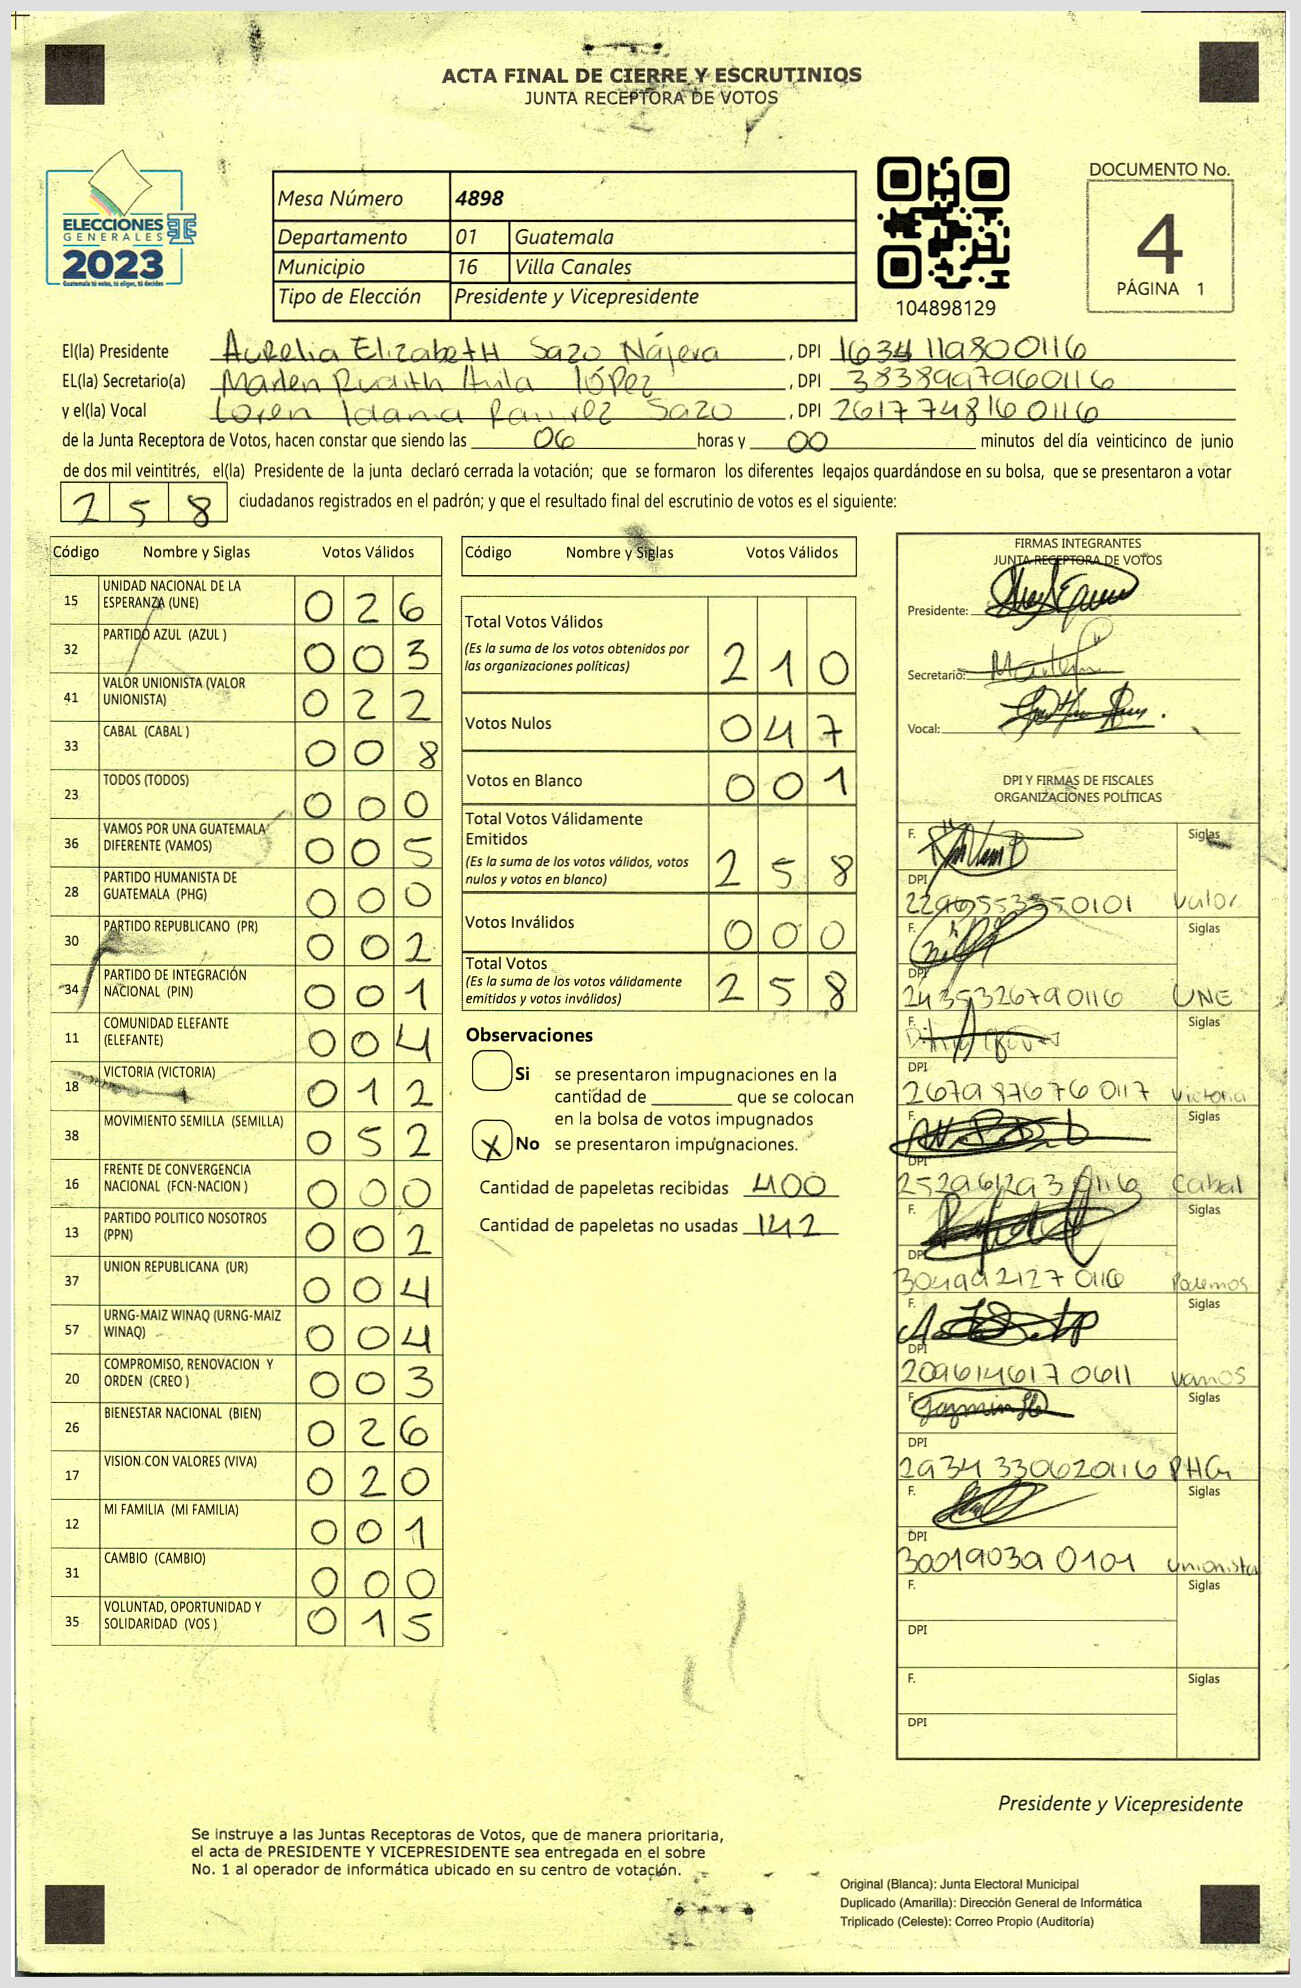 ACTA FINAL DE CIERRE Y ESCRUTINIOS
JUNTA RECEPTORA DE VOTOS
ELECCIONES
GENERALES
2023
Guatemala tú votas, tú eliges, tú decides
Mesa Número 4898
Departamento 01 Guatemala
Municipio 16 Villa Canales
Tipo de Elección Presidente y Vicepresidente
104898129
DOCUMENTO No.
4
PÁGINA 1
El(la) Presidente Aurelia Elizabeth Sazo Nájera, DPI 1634119800116
EL(la) Secretario(a) Marlen Rudith Avila López, DPI 3838997960116
y el(la) Vocal Loren Idania Ramirez Sazo, DPI 2617748160116
de la Junta Receptora de Votos, hacen constar que siendo las 06 horas y 00 minutos del día veinticinco de junio
de dos mil veintitrés, el(la) Presidente de la junta declaró cerrada la votación; que se formaron los diferentes legajos guardándose en su bolsa, que se presentaron a votar
258 ciudadanos registrados en el padrón; y que el resultado final del escrutinio de votos es el siguiente:
Código Nombre y Siglas Votos Válidos
15 UNIDAD NACIONAL DE LA ESPERANZA (UNE) 026
32 PARTIDO AZUL (AZUL ) 003
41 VALOR UNIONISTA (VALOR UNIONISTA) 022
33 CABAL (CABAL ) 008
23 TODOS (TODOS) 000
36 VAMOS POR UNA GUATEMALA DIFERENTE (VAMOS) 005
28 PARTIDO HUMANISTA DE GUATEMALA (PHG) 000
30 PARTIDO REPUBLICANO (PR) 002
34 PARTIDO DE INTEGRACIÓN NACIONAL (PIN) 001
11 COMUNIDAD ELEFANTE (ELEFANTE) 004
18 VICTORIA (VICTORIA) 012
38 MOVIMIENTO SEMILLA (SEMILLA) 052
16 FRENTE DE CONVERGENCIA NACIONAL (FCN-NACION ) 000
13 PARTIDO POLITICO NOSOTROS (PPN) 002
37 UNION REPUBLICANA (UR) 004
57 URNG-MAIZ WINAQ (URNG-MAIZ WINAQ) 004
20 COMPROMISO, RENOVACION Y ORDEN (CREO ) 003
26 BIENESTAR NACIONAL (BIEN) 026
17 VISION CON VALORES (VIVA) 020
12 MI FAMILIA (MI FAMILIA) 001
31 CAMBIO (CAMBIO) 000
35 VOLUNTAD, OPORTUNIDAD Y SOLIDARIDAD (VOS ) 015
Código Nombre y Siglas Votos Válidos
Total Votos Válidos
(Es la suma de los votos obtenidos por
las organizaciones políticas) 210
Votos Nulos 047
Votos en Blanco 001
Total Votos Válidamente
Emitidos
(Es la suma de los votos válidos, votos
nulos y votos en blanco) 258
Votos Inválidos 000
Total Votos
(Es la suma de los votos válidamente
emitidos y votos inválidos) 258
Observaciones
Si se presentaron impugnaciones en la
cantidad de ________ que se colocan
en la bolsa de votos impugnados
X No se presentaron impugnaciones.
Cantidad de papeletas recibidas 400
Cantidad de papeletas no usadas 142
FIRMAS INTEGRANTES
JUNTA RECEPTORA DE VOTOS
Presidente:
Secretario:
Vocal:
DPI Y FIRMAS DE FISCALES
ORGANIZACIONES POLÍTICAS
F. Siglas
DPI
2296553350101 Valor
F. Siglas
DPI
2435326790116 UNE
F. Siglas
DPI
2679876760117 Victoria
F. Siglas
DPI
2529612930116 Cabal
F. Siglas
DPI
3049921270116 Podemos
F. Siglas
DPI
2096146170611 vamos
F. Siglas
DPI
2934330620116 PHG
F. Siglas
DPI
300190390101 unionista
F. Siglas
DPI
F. Siglas
DPI
Presidente y Vicepresidente
Se instruye a las Juntas Receptoras de Votos, que de manera prioritaria,
el acta de PRESIDENTE Y VICEPRESIDENTE sea entregada en el sobre
No. 1 al operador de informática ubicado en su centro de votación.
Original (Blanca): Junta Electoral Municipal
Duplicado (Amarilla): Dirección General de Informática
Triplicado (Celeste): Correo Propio (Auditoría)